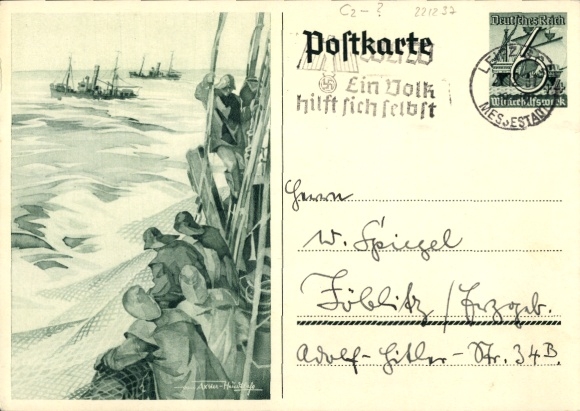 C2-? 221237
Deutsches Reich
Postkarte
6 + 4
Winterhilfswerk
LEIPZIG
MESSESTADT
Ein Volk
hilft sich selbst
Herrn
W. Spiegel
Zöblitz / Erzgeb.
Adolf-Hitler-Str. 34B.